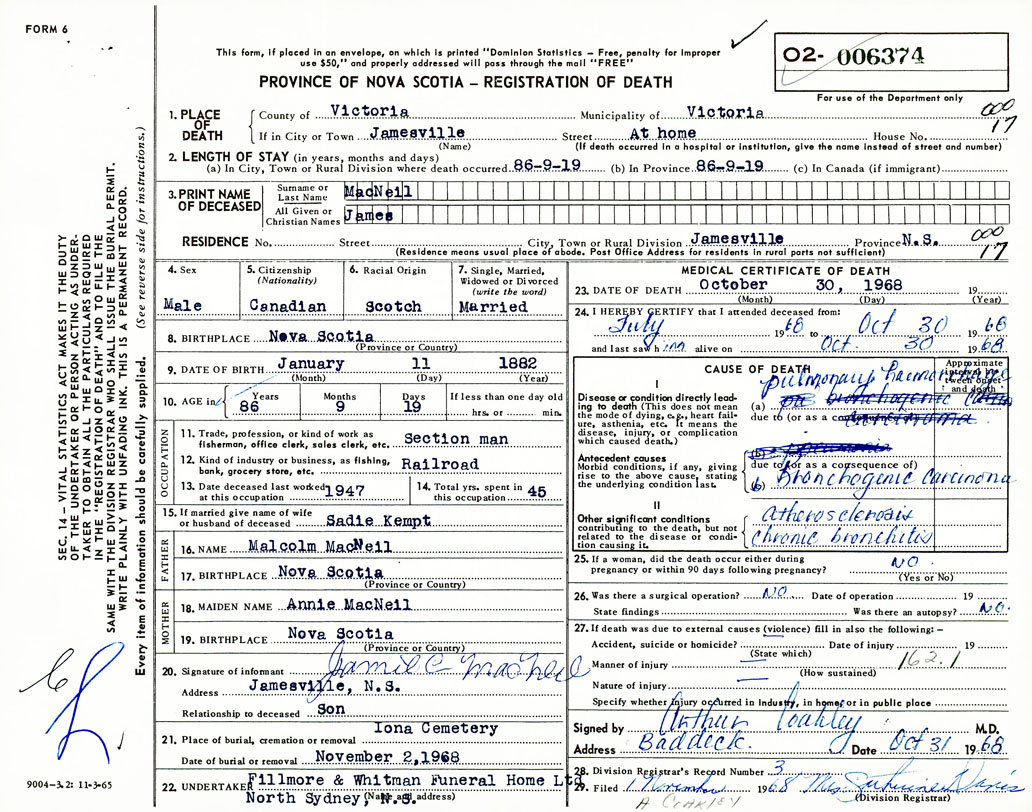 FORM 6
This form, if placed in an envelope, on which is printed "Dominion Statistics – Free, penalty for improper
use $50," and properly addressed will pass through the mail "FREE"
PROVINCE OF NOVA SCOTIA – REGISTRATION OF DEATH
02- 006374
For use of the Department only
SEC. 14 – VITAL STATISTICS ACT MAKES IT THE DUTY
OF THE UNDERTAKER OR PERSON ACTING AS UNDER-
TAKER TO OBTAIN ALL THE PARTICULARS REQUIRED
IN THE "REGISTRATION OF DEATH" AND TO FILE THE
SAME WITH THE DIVISION REGISTRAR WHO SHALL ISSUE THE BURIAL PERMIT.
WRITE PLAINLY WITH UNFADING INK. THIS IS A PERMANENT RECORD.
Every item of information should be carefully supplied. (See reverse side for instructions.)
1. PLACE OF DEATH County of Victoria Municipality of Victoria 000
If in City or Town Jamesville Street At home House No. 17
(Name) (If death occurred in a hospital or institution, give the name instead of street and number)
2. LENGTH OF STAY (in years, months and days)
(a) In City, Town or Rural Division where death occurred 86-9-19 (b) In Province 86-9-19 (c) In Canada (if immigrant)
3. PRINT NAME OF DECEASED Surname or Last Name MacNeil
All Given or Christian Names James
RESIDENCE No. Street City, Town or Rural Division Jamesville Province N.S. 000
(Residence means usual place of abode. Post Office Address for residents in rural parts not sufficient) 17
4. Sex 5. Citizenship (Nationality) 6. Racial Origin 7. Single, Married, Widowed or Divorced (write the word)
Male Canadian Scotch Married
8. BIRTHPLACE Nova Scotia
(Province or Country)
9. DATE OF BIRTH January 11 1882
(Month) (Day) (Year)
10. AGE in Years Months Days If less than one day old
86 9 19 hrs. or min.
OCCUPATION
11. Trade, profession, or kind of work as
fisherman, office clerk, sales clerk, etc. Section man
12. Kind of industry or business, as fishing,
bank, grocery store, etc. Railroad
13. Date deceased last worked at this occupation 1947 14. Total yrs. spent in this occupation 45
15. If married give name of wife
or husband of deceased Sadie Kempt
FATHER
16. NAME Malcolm MacNeil
17. BIRTHPLACE Nova Scotia
(Province or Country)
MOTHER
18. MAIDEN NAME Annie MacNeil
19. BIRTHPLACE Nova Scotia
(Province or Country)
20. Signature of informant Jamie C MacNeil
Address Jamesville, N.S.
Relationship to deceased Son
21. Place of burial, cremation or removal Iona Cemetery
Date of burial or removal November 2,1968
22. UNDERTAKER Fillmore & Whitman Funeral Home Ltd
North Sydney, N.S.
(Name and address)
9004-3.2: 11-3-65
MEDICAL CERTIFICATE OF DEATH
23. DATE OF DEATH October 30, 1968 19
(Month) (Day) (Year)
24. I HEREBY CERTIFY that I attended deceased from:
July 1968 to Oct 30 1968
and last saw him alive on Oct. 30 1968
CAUSE OF DEATH
Approximate interval between onset and death
I
Disease or condition directly lead-
ing to death (This does not mean
the mode of dying, e.g., heart fail-
ure, asthenia, etc. It means the
disease, injury, or complication
which caused death.)
(a) pulmonary haemorrhage
due to (or as a consequence of)
Antecedent causes
Morbid conditions, if any, giving
rise to the above cause, stating
the underlying condition last.
(b)
due to (or as a consequence of)
(b) Bronchogenic Carcinoma
II
Other significant conditions
contributing to the death, but not
related to the disease or condi-
tion causing it.
Atherosclerosis
chronic bronchitis
25. If a woman, did the death occur either during
pregnancy or within 90 days following pregnancy? NO
(Yes or No)
26. Was there a surgical operation? NO Date of operation 19
State findings Was there an autopsy? NO
27. If death was due to external causes (violence) fill in also the following: –
Accident, suicide or homicide? Date of injury 19
(State which)
Manner of injury 162.1
(How sustained)
Nature of injury
Specify whether injury occurred in Industry, in home, or in public place
Signed by Arthur Coakley M.D.
Address Baddeck. Date Oct 31 1968
28. Division Registrar's Record Number 3
29. Filed 1 November 1968 Mrs. Davis
A COAKLEY (Division Registrar)